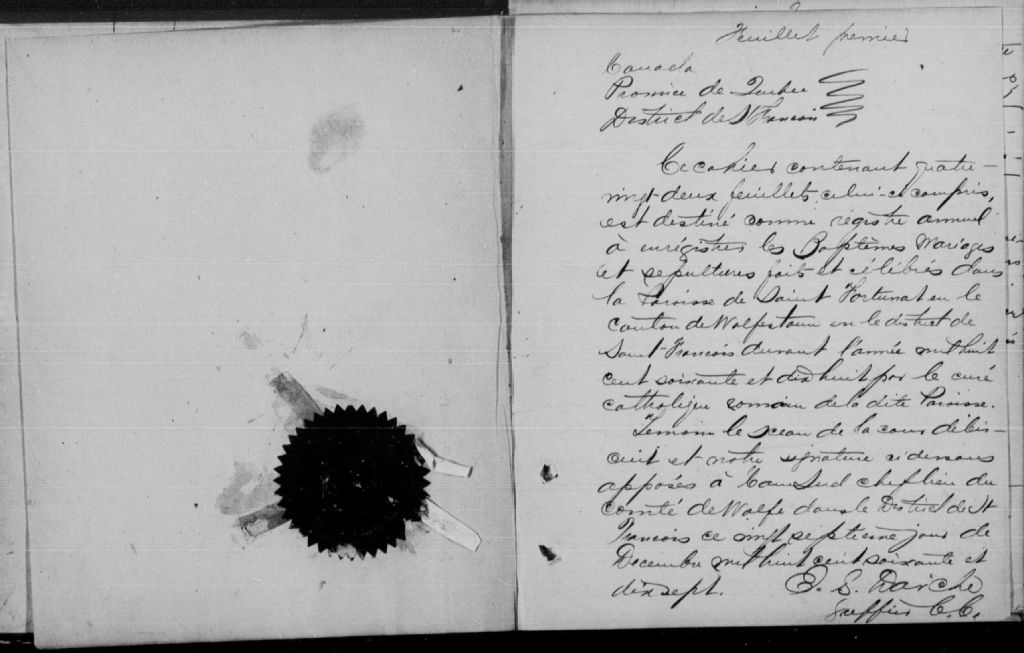 Feuillet premier
Canada
Province de Quebec
District de St Francois
Ce cahier contenant quatre-
vingt-deux feuillets, celui-ci compris,
est destiné comme régistre annuel
à enrégistrer les Baptêmes Mariages
et sepultures faits et célébrés dans
la Paroisse de Saint Fortunat en le
canton de Wolfestown en le district de
Saint-Francois durant l'année mil huit
cent soixante et dix huit par le curé
catholique romain de la dite Paroisse.
Temoin le sceau de la cour de Cir-
cuit et notre signature ci dessous
apposés à Ham Sud chef lieu du
comté de Wolfe dans le District de St
Francois ce vingt septieme jour de
Decembre mil huit cent soixante et
dix sept. E. S. Darche
Greffier C. C.